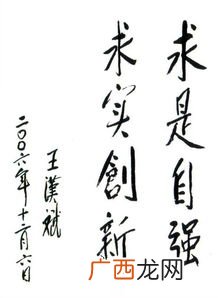 求是自强
求实創新
王漢斌
二〇〇六年十二月六日
广西龙网